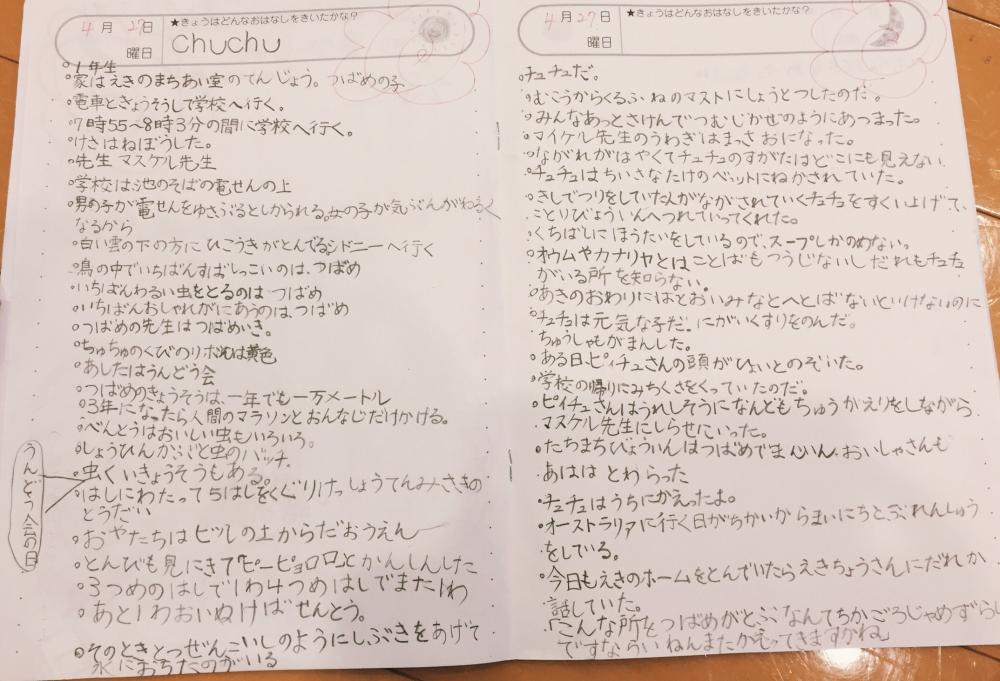 4月27日
曜日
★きょうはどんなおはなしをきいたかな？
chuchu
。1年生
。家はえきのまちあい室のてんじょう。つばめの子
。電車ときょうそうして学校へ行く。
。7時55～8時3分の間に学校へ行く。
。けさはねぼうした。
。先生 マスケル先生
。学校は池のそばの電せんの上
。男の子が電せんをゆさぶるとしかられる。女の子が気ぶんがわるく
なるから
。白い雲の下の方にひこうきがとんでるシドニーへ行く
。鳥の中でいちばんすばしっこいのは、つばめ
。いちばんわるい虫をとるのは つばめ
。いちばんおしゃれがにあうのは、つばめ
。つばめの先生はつばめいき。
。ちゅちゅのくびのリボンは黄色
。あしたはうんどう会
。つばめのきょうそうは、一年でも一万メートル
。3年になったら人間のマラソンとおんなじだけかける。
。べんとうはおいしい虫もいろいろ。
。しょうひんがぶどと虫のバッチ。
。虫くいきょうそうもある。
。はしにわたって5はしをくぐりけっしょうてんみさきの
とうだい
うんどう会の日
。おやたちはビルの土からだおうえん
。とんびも見にきて「ピーピョロロ」とかんしんした
。3つめのはしで1わ4つめはしでまた1わ
。あと1わおいぬけばせんとう。
。そのときとつぜんこいしのようにしぶきをあげて
水におちたのがいる
4月27日
曜日
★きょうはどんなおはなしをきいたかな？
。チュチュだ。
。むこうからくるふねのマストにしょうとつしたのだ。
。みんなあっとさけんでつむじかぜのようにあつまった。
。マイケル先生のうわぎはまっさおになった。
。ながれがはやくてチュチュのすがたはどこにも見えない
。チュチュはちいさなたけのベットにねかされていた。
。きしでつりをしていた人がながされていくチュチュをすくいよげて、
ことりびょういんへつれていってくれた。
。くちばしにほうたいをしているので、スープしかのめない。
。オウムやカナリヤとはことばもつうじないし だれもチュチュ
がいる所を知らない。
。あきのおわりにはとおいみなとへとばないといけないのに
。チュチュは元気な子だ。にがいくすりをのんだ。
。ちゅうしゃもがまんした。
。ある日、ピィチュさんの頭がひょいとのぞいた。
。学校の帰りにみちくさをくっていたのだ。
。ピィチュさんはうれしそうになんどもちゅうがえりをしながら
マスケル先生にしらせにいった。
。たちまちびょういんはつばめでまんいん。おいしゃさんも
あはは とわらった
。チュチュはうちにかえったよ。
。オーストラリアに行く日がちかいからまいにちとぶれんしゅう
をしている。
。今日もえきのホームをとんでいたらえきちょうさんにだれか
話していた。
「こんな所をつばめがとぶなんてちかごろじゃめずらし
ですならいねんまたかえってきますかね」